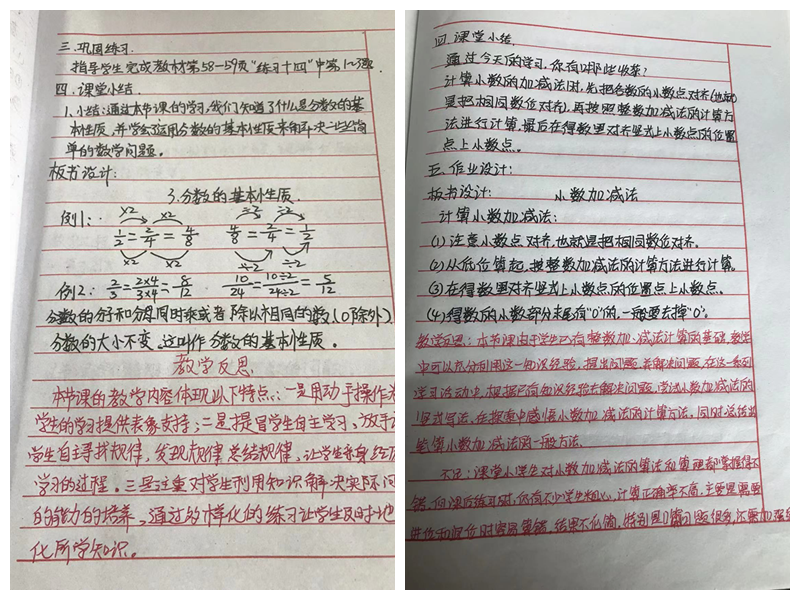 三.巩固练习.
指导学生完成教材第58-59页"练习十四"中第1~3题.
四.课堂小结.
1.小结:通过本节课的学习,我们知道了什么是分数的基
本性质,并学会运用分数的基本性质来解决一些简
单的数学问题。
板书设计:
3.分数的基本性质.
例1: ×2 ×2 ÷2 ÷2
1/2 = 2/4 = 4/8 4/8 = 2/4 = 1/2
×2 ×2 ÷2 ÷2
例2: 2/3 = 2×4/3×4 = 8/12 10/24 = 10÷2/24÷2 = 5/12
分数的分子和分母同时乘或者除以相同的数(0除外)
分数的大小不变。这叫作分数的基本性质。
教学反思
本节课的教学内容体现以下特点:一是用动手操作为
学生的学习提供表象支持;二是提冒学生自主学习,放手
学生自主寻找规律,发现规律,总结规律,让学生亲身经历
学习的过程。三是注重对学生利用知识解决实际问
的能力的培养。通过多样化的练习让学生及时地
化所学知识。
四.课堂小结.
通过今天的学习,你有哪些收获?
计算小数的加减法时,先把各数的小数点对齐(也就
是把相同数位对齐),再按照整数加减法的计算方
法进行计算,最后在得数里对齐竖式上小数点的位置
点上小数点。
五.作业设计:
板书设计: 小数加减法
计算小数加减法:
(1)注意小数点对齐,也就是把相同数位对齐。
(2)从低位算起,按整数加减法的计算方法进行计算。
(3)在得数里对齐竖式上小数点的位置点上小数点。
(4)得数的小数部分末尾有"0"的,一般要去掉"0"。
教学反思:本节课由于学生已有整数加减法计算的基础,教学
中可以充分利用这一知识经验,提出问题,并解决问题,在这一系列
学习活动中,根据已有知识经验去解决问题,尝试小数加减法的
竖式写法,在探索中感悟小数加减法的计算方法,同时总结出
笔算小数加减法的一般方法.
不足:课堂上学生对小数加减法的算法和算理都掌握得不
错,但课后练习时,仍有不少学生粗心,计算正确率不高,主要是需要
进位和退位时容易算错,结果不化简,特别是计算题